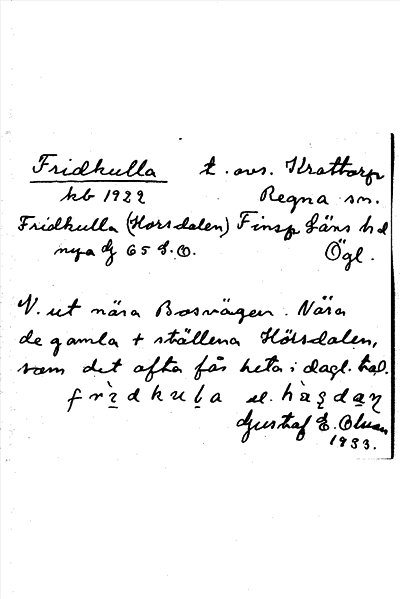 Fridkulla t. avs. Krattorp
kb 1922 Regna sn.
Fridkulla (Horsdalen) Finsp Läns hd
nya G 65 S.O. Ögl.
N. ut nära Bosvägen. Nära
de gamla + ställena Hörsdalen,
som det ofta får heta i dagl. tal.
frìdkuḷa el.
Gustaf E. Olsson
1933.